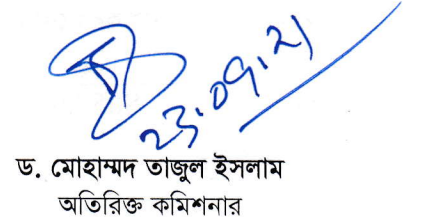 23.09.21
ড. মোহাম্মদ তাজুল ইসলাম
অতিরিক্ত কমিশনার